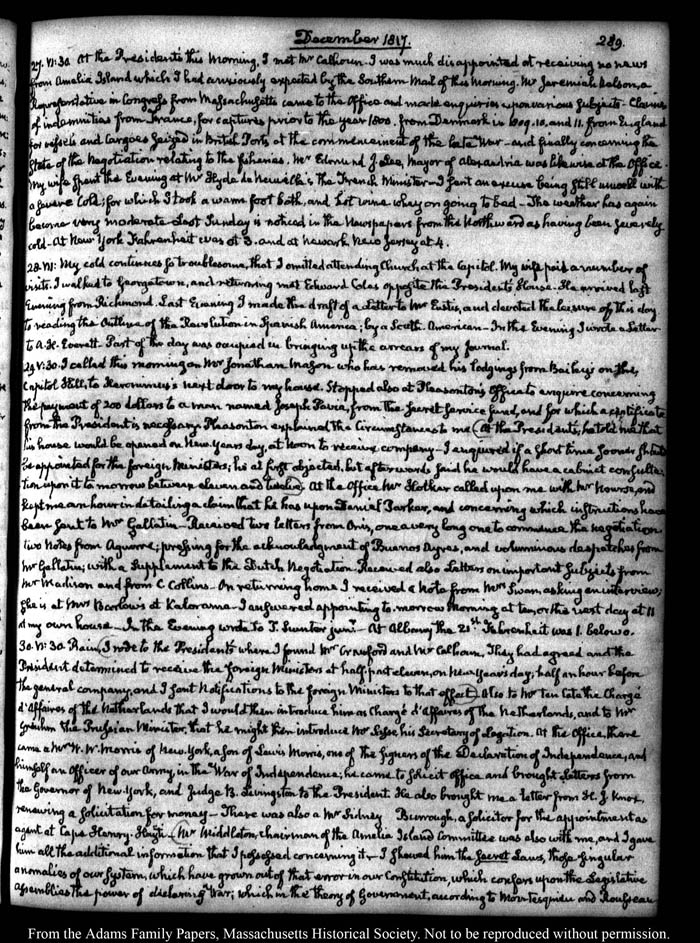 December 1817. 289.
27. VI:30. At the President's this Morning, I met Mr Calhoun. I was much disappointed at receiving no news
from Amelia Island which I had anxiously expected by the Southern Mail of this Morning. Mr Jeremiah Nelson, a
Representative in Congress from Massachusetts came to the Office and made enquiries upon various subjects. Claims
of indemnities from France, for captures prior to the year 1800. from Denmark in 1809. 10, and 11. from England
for vessels and cargoes seized in British Ports at the commencement of the late War—and finally concerning the
State of the Negotiation relating to the fisheries. Mr Edmund J. Lee, Mayor of Alexandria was likewise at the Office.
My wife spent the Evening at Mr Hyde de Neuville's the French Minister—I sent an excuse being still unwell with
a severe Cold; for which I took a warm foot bath, and hot wine whey on going to bed—The weather has again
become very moderate. Last Sunday is noticed in the Newspapers from the Northward as having been severely
cold—At New York Fahrenheit was at 3. and at Newark New Jersey at 4.
28. VI: My cold continues so troublesome, that I omitted attending Church at the Capitol. My wife paid a number of
visits. I walked to Georgetown, and returning met Edward Coles opposite the President's House. He arrived last
Evening from Richmond. Last Evening I made the draft of a Letter to Mr Eustis, and devoted the leisure of this day
to reading the Outline of the Revolution in Spanish America; by a South American—In the Evening I wrote a Letter
to A. H. Everett. Part of the day was occupied in bringing up the arrears of my Journal.
29. V:30. I called this morning on Mr Jonathan Mason who has removed his lodgings from Bailey's on the
Capitol Hill, to next door to my house. Stopped also at Pleasonton's Office to enquire concerning
the payment of 200 dollars to a man named Joseph from the Secret Service fund, and for which a certificate
from the President is necessary. Pleasonton explained the Circumstances to me (At the President's, he told me that
his house would be opened on New Years day, at Noon to receive company—I enquired if a short time sooner should
be appointed for the foreign Ministers; he at first objected, but afterwards said he would have a cabinet consulta-
tion upon it to morrow between eleven and twelve). At the Office Mr called upon me with Mr Nourse, and
kept me an hour in detailing a claim that he has upon Daniel Parker, and concerning which instructions have
been sent to Mr Gallatin—Received two letters from Onis, one a very long one to commence the negotiation
two Notes from Aguirre; pressing for the acknowledgment of Buenos Ayres, and voluminous despatches from
Mr Gallatin; with a Supplement to the Dutch Negotiation. Received also Letters on important Subjects from
Mr Madison and from C. Collins. On returning home I received a Note from Mrs Swan, asking an interview;
she is at Mrs Barlow's at Kalorama—I answered appointing to-morrow Morning at ten, or the next day at 11
at my own house—In the Evening wrote to T. Sumter junr.—At Albany the 21st Fahrenheit was 1. below 0.
30. VI:30. Rain, (I rode to the President's where I found Mr Crawford and Mr Calhoun. They had agreed and the
President determined to receive the foreign Ministers at half past eleven, on New years day; half an hour before
the general company, and I sent Notifications to the foreign Ministers to that effect). Also to Mr ten Cate the Chargé
d'Affaires of the Netherlands that I would then introduce him as Chargé d'Affaires of the Netherlands, and to Mr
Greuhm the Prussian Minister, that he might then introduce Mr his Secretary of Legation. At the Office, there
came a Mr W. W. Morris of New-York, a son of Lewis Morris, one of the Signers of the Declaration of Independence, and
himself an Officer of our Army, in the War of Independence; he came to solicit office and brought Letters from
the Governor of New-York, and Judge B. Livingston to the President. He also brought me a letter from H. J. Knox,
renewing a solicitation for money—There was also a Mr Sidney Burrough, a solicitor for the appointment as
agent at Cape Henry, Hayti—(Mr Middleton, chairman of the Amelia Island Committee was also with me, and I gave
him all the additional information that I possessed concerning it.—I shewed him the Secret Laws, those singular
anomalies of our System, which have grown out of that error in our Constitution, which confers upon the Legislative
Assemblies the power of declaring War; which in the theory of Government, according to Montesquieu and Rousseau
From the Adams Family Papers, Massachusetts Historical Society. Not to be reproduced without permission.